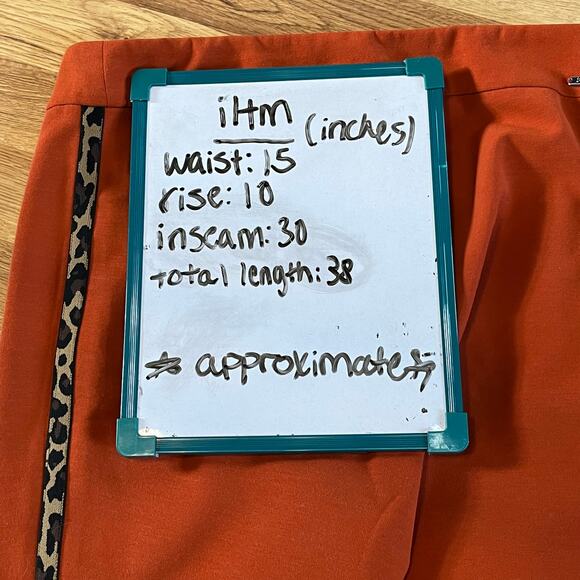 iHm
(inches)
waist: 15
rise: 10
inseam: 30
total length: 38
* approximate *